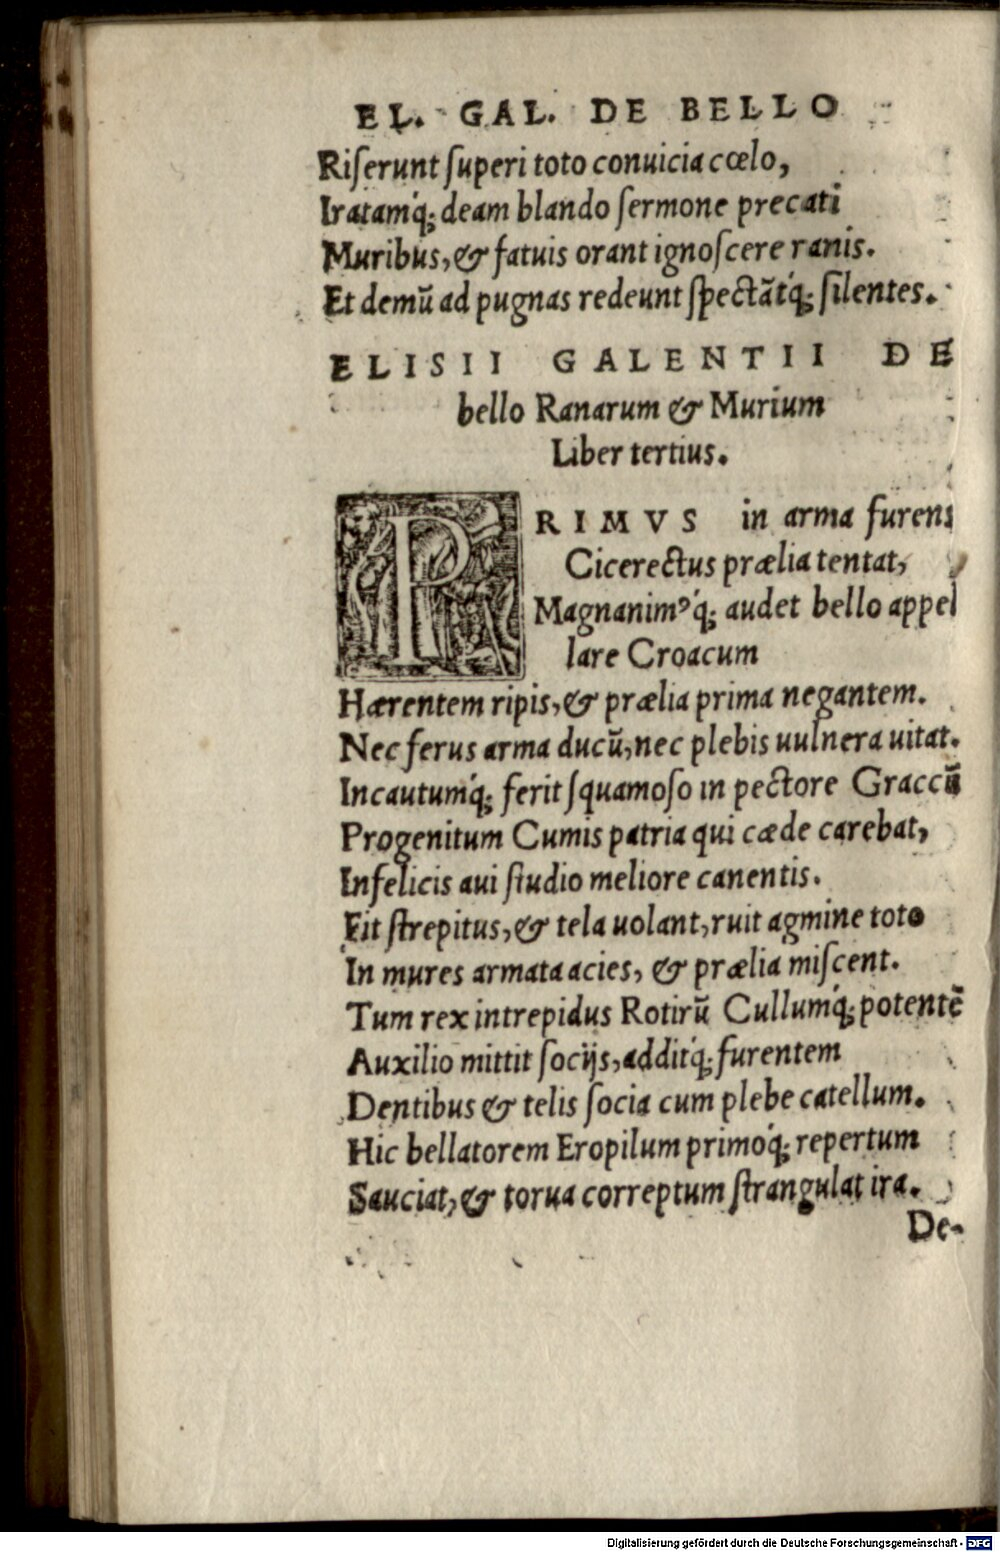 EL. GAL. DE BELLO
Riſerunt ſuperi toto conuicia cœlo,
Iratamq́; deam blando ſermone precati
Muribus, & fatuis orant ignoſcere ranis.
Et demū ad pugnas redeunt ſpectãtq́; ſilentes.
ELISII GALENTII DE
bello Ranarum & Murium
Liber tertius.
PRIMVS in arma furens
Cicerectus prælia tentat,
Magnanimꝰq́; audet bello appel
lare Croacum
Hærentem ripis, & prælia prima negantem.
Nec ferus arma ducū, nec plebis uulnera uitat.
Incautumq́; ferit ſquamoſo in pectore Graccū
Progenitum Cumis patria qui cæde carebat,
Infelicis aui ſtudio meliore canentis.
Fit ſtrepitus, & tela uolant, ruit agmine toto
In mures armata acies, & prælia miſcent.
Tum rex intrepidus Rotirū Cullumq́; potentē
Auxilio mittit ſocijs, additq́; furentem
Dentibus & telis ſocia cum plebe catellum.
Hic bellatorem Eropilum primoq́; repertum
Sauciat, & torua correptum ſtrangulat ira.
De-
Digitalisierung gefördert durch die Deutsche Forschungsgemeinschaft - DFG